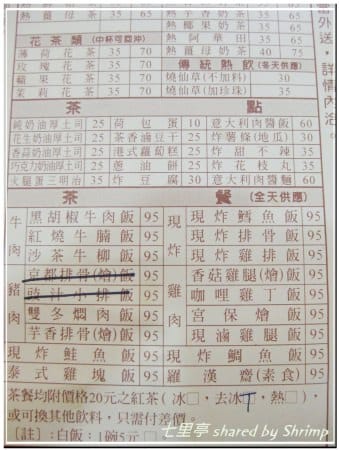 熱薑母茶 35 65 熱椰果奶茶 35 65
熱阿華田 35 65
花茶類(中杯可回沖) 熱薑母奶茶 40 75
薄荷花茶 35 70
玫瑰花茶 35 70 傳統熱飲(冬天供應)
蘋果花茶 35 70 燒仙草(不加料) 30
茉莉花茶 35 70 燒仙草(加珍珠) 35
茶 點
純奶油厚土司 25 荷包蛋 10 意大利肉醬飯 60
花生奶油厚土司 25 茶香滷豆干 25 炸薯條(地瓜) 30
香蒜奶油厚土司 25 港式蘿蔔糕 25 炸甜不辣 35
巧克力奶油厚土司 25 蔥油餅 25 炸花枝丸 35
火腿蛋三明治 35 炸豆腐 30 意大利肉醬麵 60
茶 餐(全天供應)
牛肉 黑胡椒牛肉飯 95 現炸雞肉 現炸鱈魚飯 95
紅燒牛腩飯 95 現炸排骨飯 95
沙茶牛柳飯 95 現炸雞腿飯 95
豬肉 京都排骨(燴)飯 95 香菇雞腿(燴)飯 95
豉汁小排飯 95 咖哩雞丁飯 95
雙冬燜肉飯 95 宮保燴飯 95
芋香排骨(燴)飯 95 現滷雞腿飯 95
現炸鮭魚飯 95 現炸鯛魚飯 95
泰式雞塊飯 95 羅漢齋(素食) 95
茶餐均附價格20元之紅茶(冰□,去冰□,熱□),
或可換其他飲料,只需付差價。
[註]:白飯:1碗5元□
外送,詳情內洽。
七里亭 shared by Shrimp